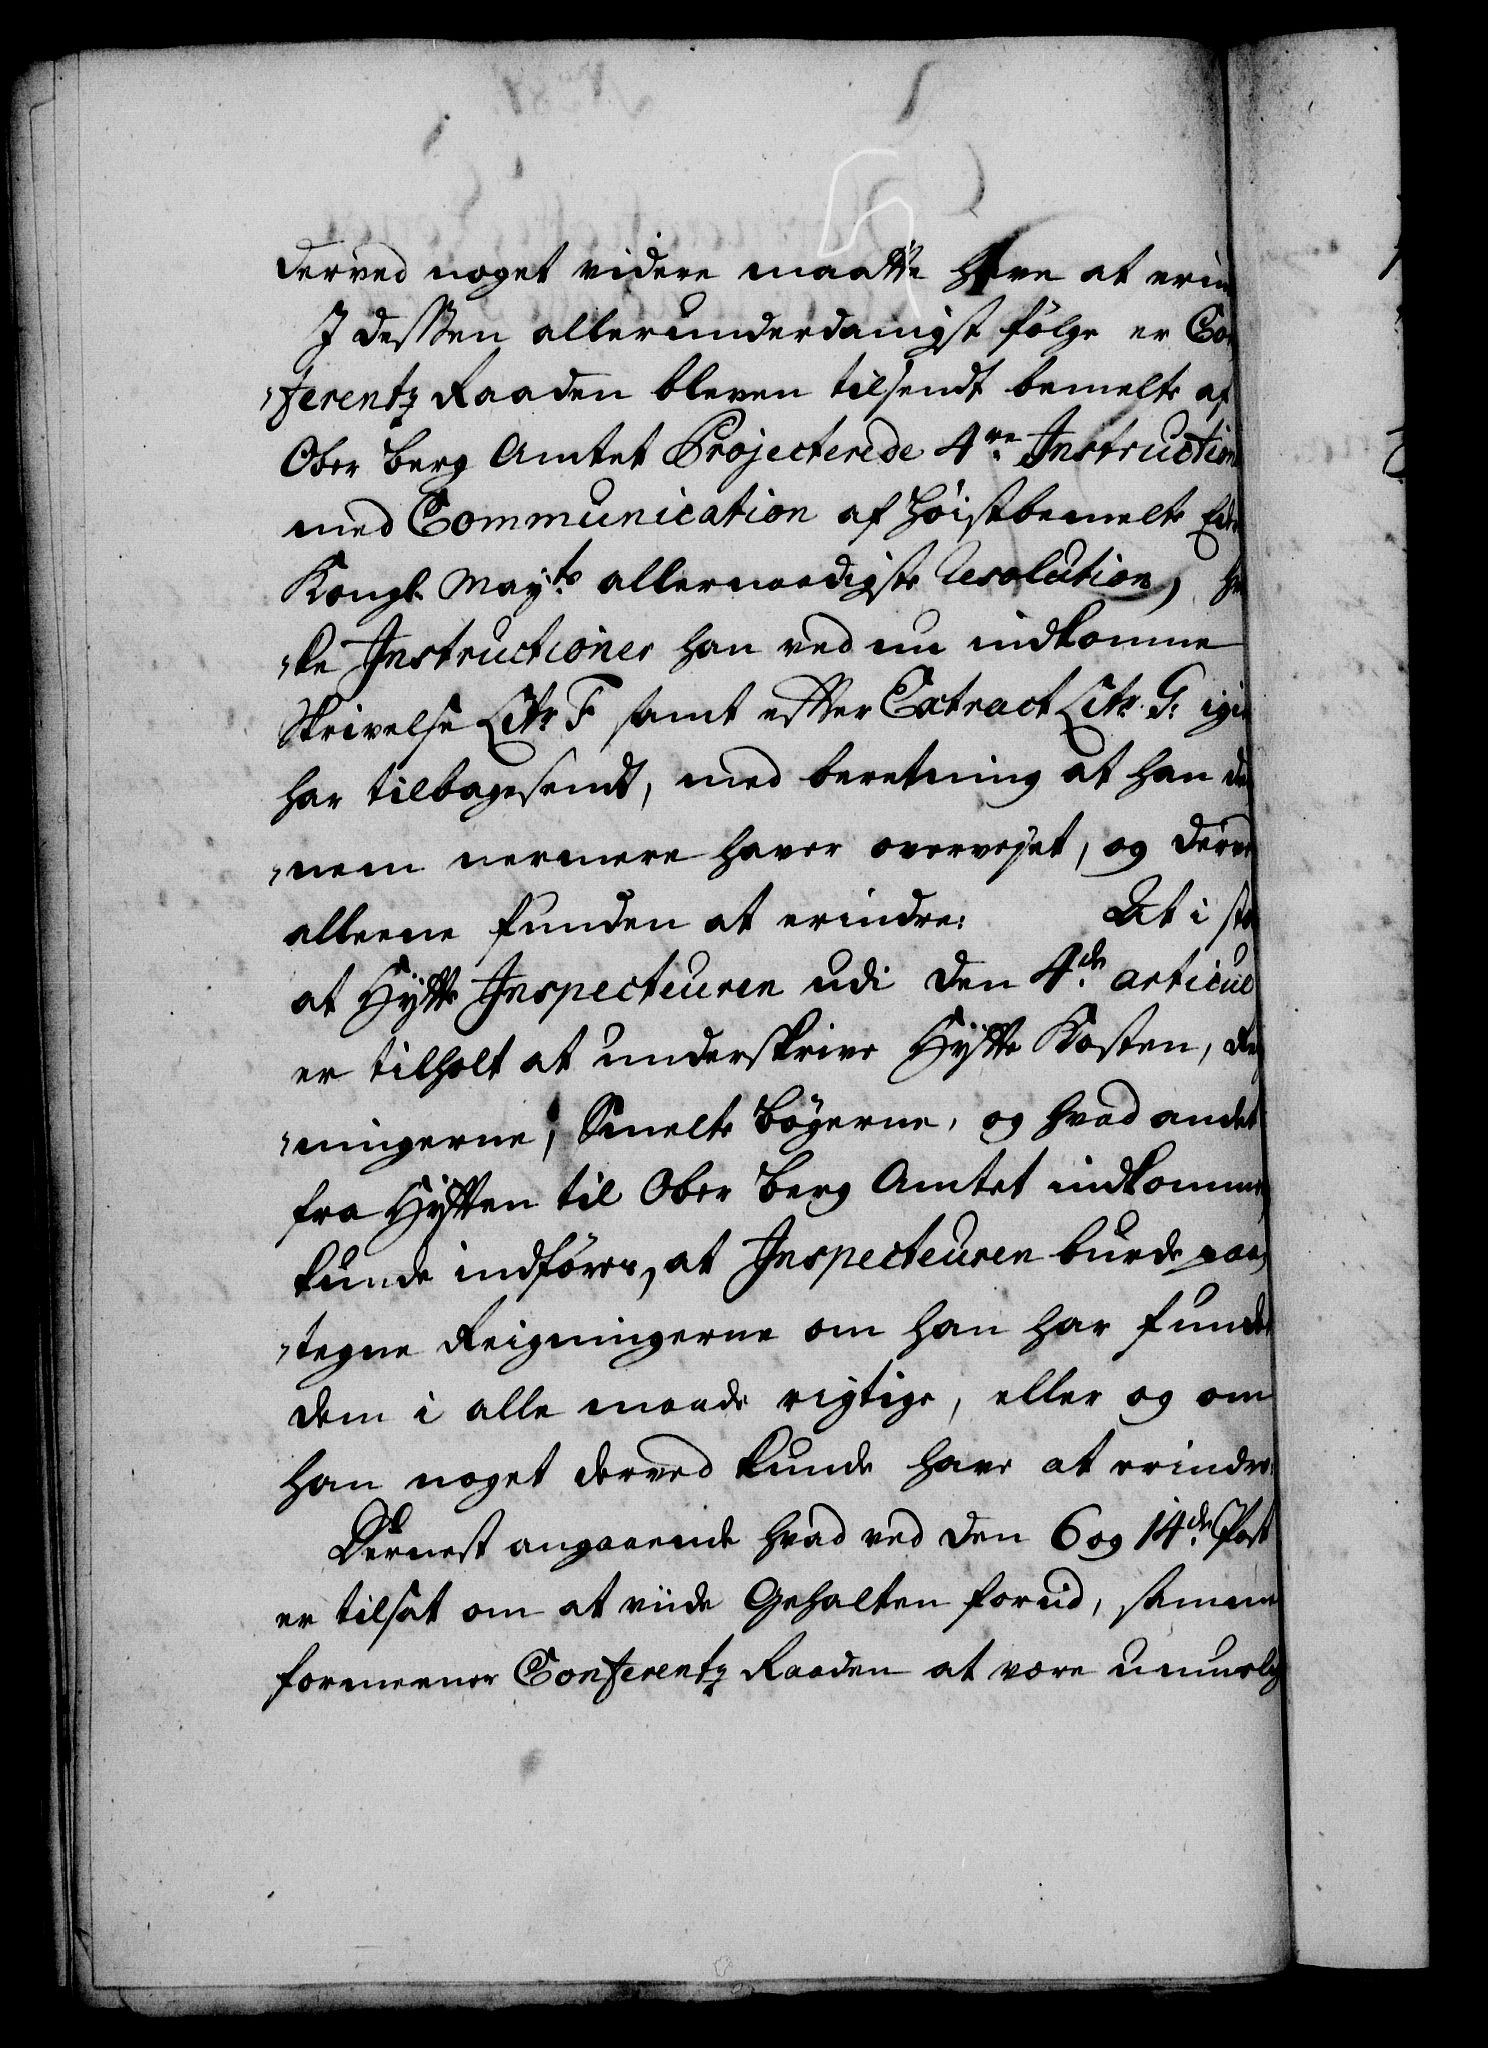 derved noget videre maatte have at erin
I dessen allerunderdanigst følge er Con
„ferentz Raaden bleven tilsendt bemelte af
Ober Berg Amtet Projecterede 4re Instruction
med Communication af høistbemelte Eders
Kongl. May:ts allernaadigste Resolution, hvil
„ke Instructioner han ved nu indkomne
Skrivelse Litr. F samt efter Extract Litr. G: igien
har tilbagesendt, med beretning at han den
„nem nermere haver overvejet, og derved
alleene funden at erindre: At i sted
at Hytte Inspecteuren udi den 4de articul
er tilholt at underskrive Hytte Kosten, Reig
„ningerne, Smelte Bøgerne, og hvad andet
fra Hytten til Ober Berg Amtet indkommer
kunde indføres, at Inspecteuren burde paa
„tegne Reigningerne om han har funden
dem i alle maade rigtige, eller og om
han noget derved kunde have at erindre.
Dernest angaaende hvad ved den 6 og 14de Post
er tilsat om at viide Gehalten forud, samme
formeener Conferentz Raaden at være umuelig